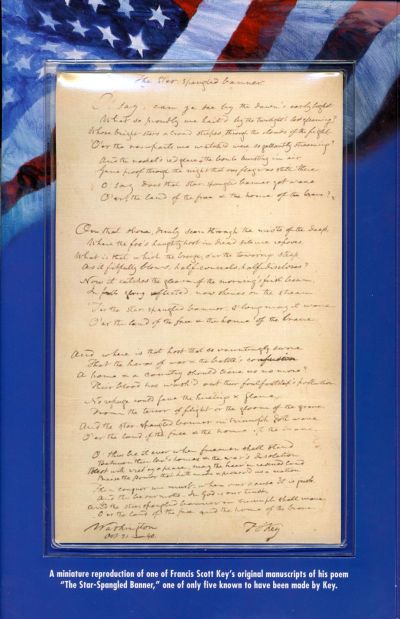 The Star-spangled banner
O say, can ye see by the dawn's early light
What so proudly we hail'd by the twilight's last gleaming?
Whose bright stars & broad stripes, through the clouds of the fight
O'er the ramparts we watched were so gallantly streaming?
And the rocket's red glare, the bomb bursting in air
Gave proof through the night that our flag was still there
O say does that star-spangled banner yet wave
O'er the land of the free & the home of the brave?
On that shore, dimly seen through the mists of the deep,
Where the foe's haughty host in dread silence reposes
What is that which the breeze, o'er the towering steep
As it fitfully blows, half conceals, half discloses?
Now it catches the gleam of the morning's first beam,
In full glory reflected now shines on the stream
'Tis the star-spangled banner O long may it wave
O'er the land of the free & the home of the brave
And where is that host that so vauntingly swore
That the havoc of war & the battle's confusion
A home & a country should leave us no more?
Their blood has wash'd out their foul footstep's pollution
No refuge could save the hireling & slave
From the terror of flight or the gloom of the grave
And the star-spangled banner in triumph doth wave
O'er the land of the free & the home of the brave
O thus be it ever when freemen shall stand
Between their lov'd homes & the war's desolation
Blest with vict'ry & peace may the heav'n rescued land
Praise the power that hath made & preserved us a nation
Then conquer we must, when our cause it is just,
And this be our motto - In God is our trust
And the star-spangled banner in triumph shall wave
O'er the land of the free and the home of the brave.
Washington
Oct 21 - 40
F S Key
A miniature reproduction of one of Francis Scott Key's original manuscripts of his poem
"The Star-Spangled Banner," one of only five known to have been made by Key.